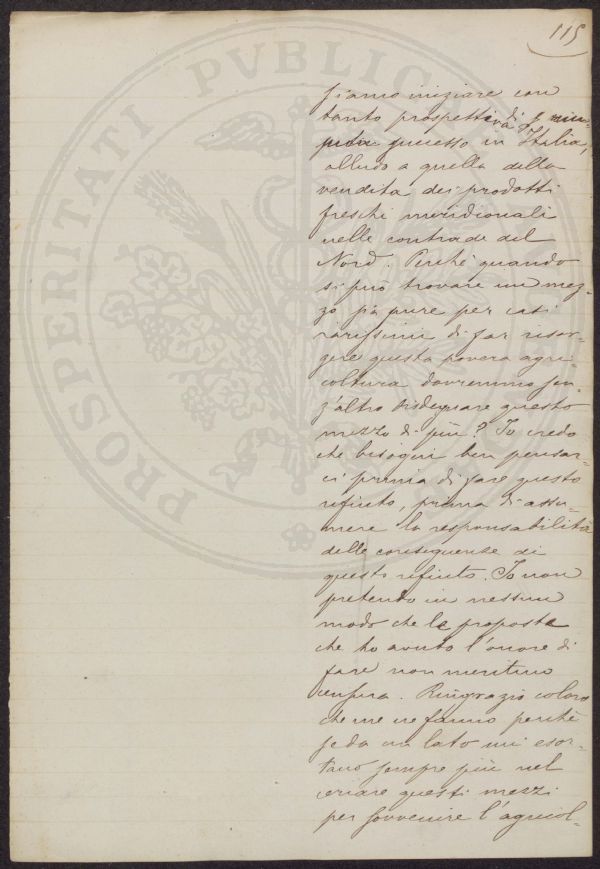 115
siamo iniziare con
tanto prospettiva di
successo in Italia,
alludo a quella della
vendita dei prodotti
freschi meridionali
nelle contrade del
Nord. Perchè quando
si può trovare un mez-
zo sia pure per casi
rarissimi di far risor-
gere questa povera agri-
coltura dovremmo sen
z'altro disdegnare questo
mezzo di più? Io credo
che bisogni ben pensar-
ci prima di fare questo
rifiuto, prima di assu-
mere la responsabilità
delle conseguenze di
questo rifiuto. Io non
pretendo in nessun
modo che le proposte
che ho avuto l'onore di
fare non meritino
censura. Ringrazio coloro
che me ne fanno perchè
se da un lato mi esor-
tano sempre più nel
questi mezzi
per sovvenire l'agricol-
PROSPERITATI PVBLICAE